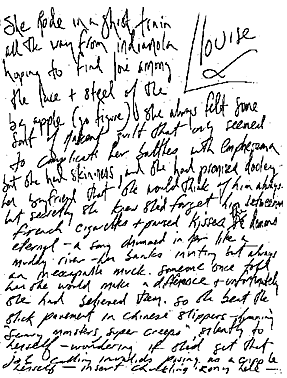 She Rode in a ghost train
all the way from indianola
hoping to find love among
the lace + steel of the
big apple (go figure) she always felt some
sort of guilt that only seemed
to complicate her battles with emphysema
but she had skinniness and she had promised
her boyfriend that she would think of him always
but secretly she knew she'd forget him between
french cigarettes + paused kisses
eternal - a song drummed in her like a
muddy river - her banks inviting but always
an inescapable muck. someone once told
her she would make a difference + unfortunately
she had believed them. so she beat the
slick pavement in chinese slippers - humming
"scary monsters, super creeps" silently to
herself - wondering if she'd get that
job invalids posing as a cripple
herself - insert irony here -
louise